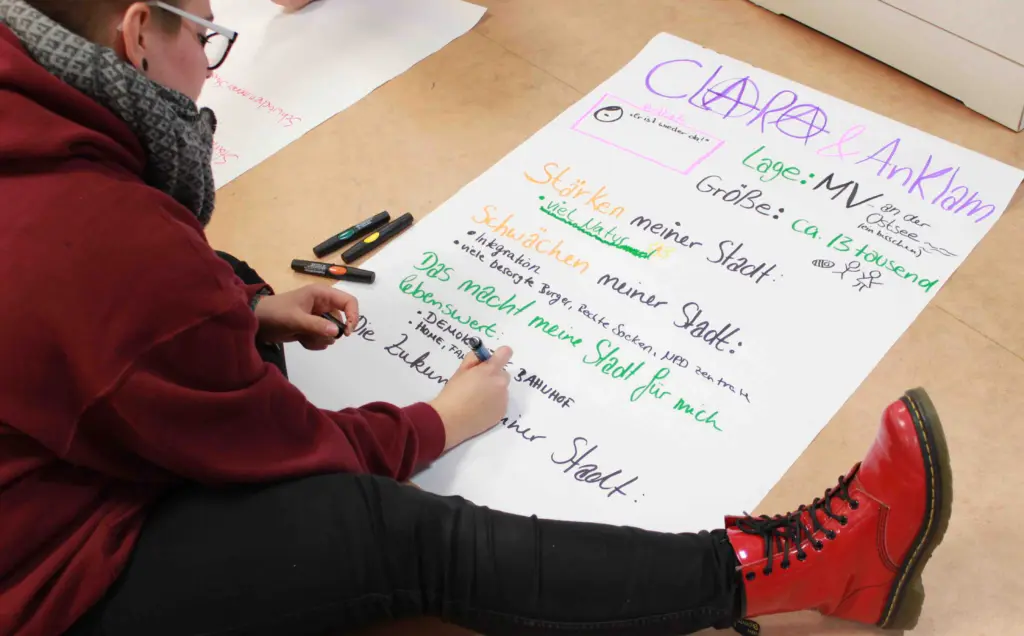 CLARA & AnKlam
"Er ist wieder da!"
Lage: MV - an der
Ostsee
(ein bisschen)
Größe: ca. 13 tausend
Stärken meiner Stadt:
• viel Natur
Schwächen meiner Stadt:
• Integration
• viele besorgte Bürger, Rechte Socken, NPD Zentrale
Das macht meine Stadt für mich
lebenswert:
• BAHNHOF
• HOME,
Die Zukun
einer Stadt: